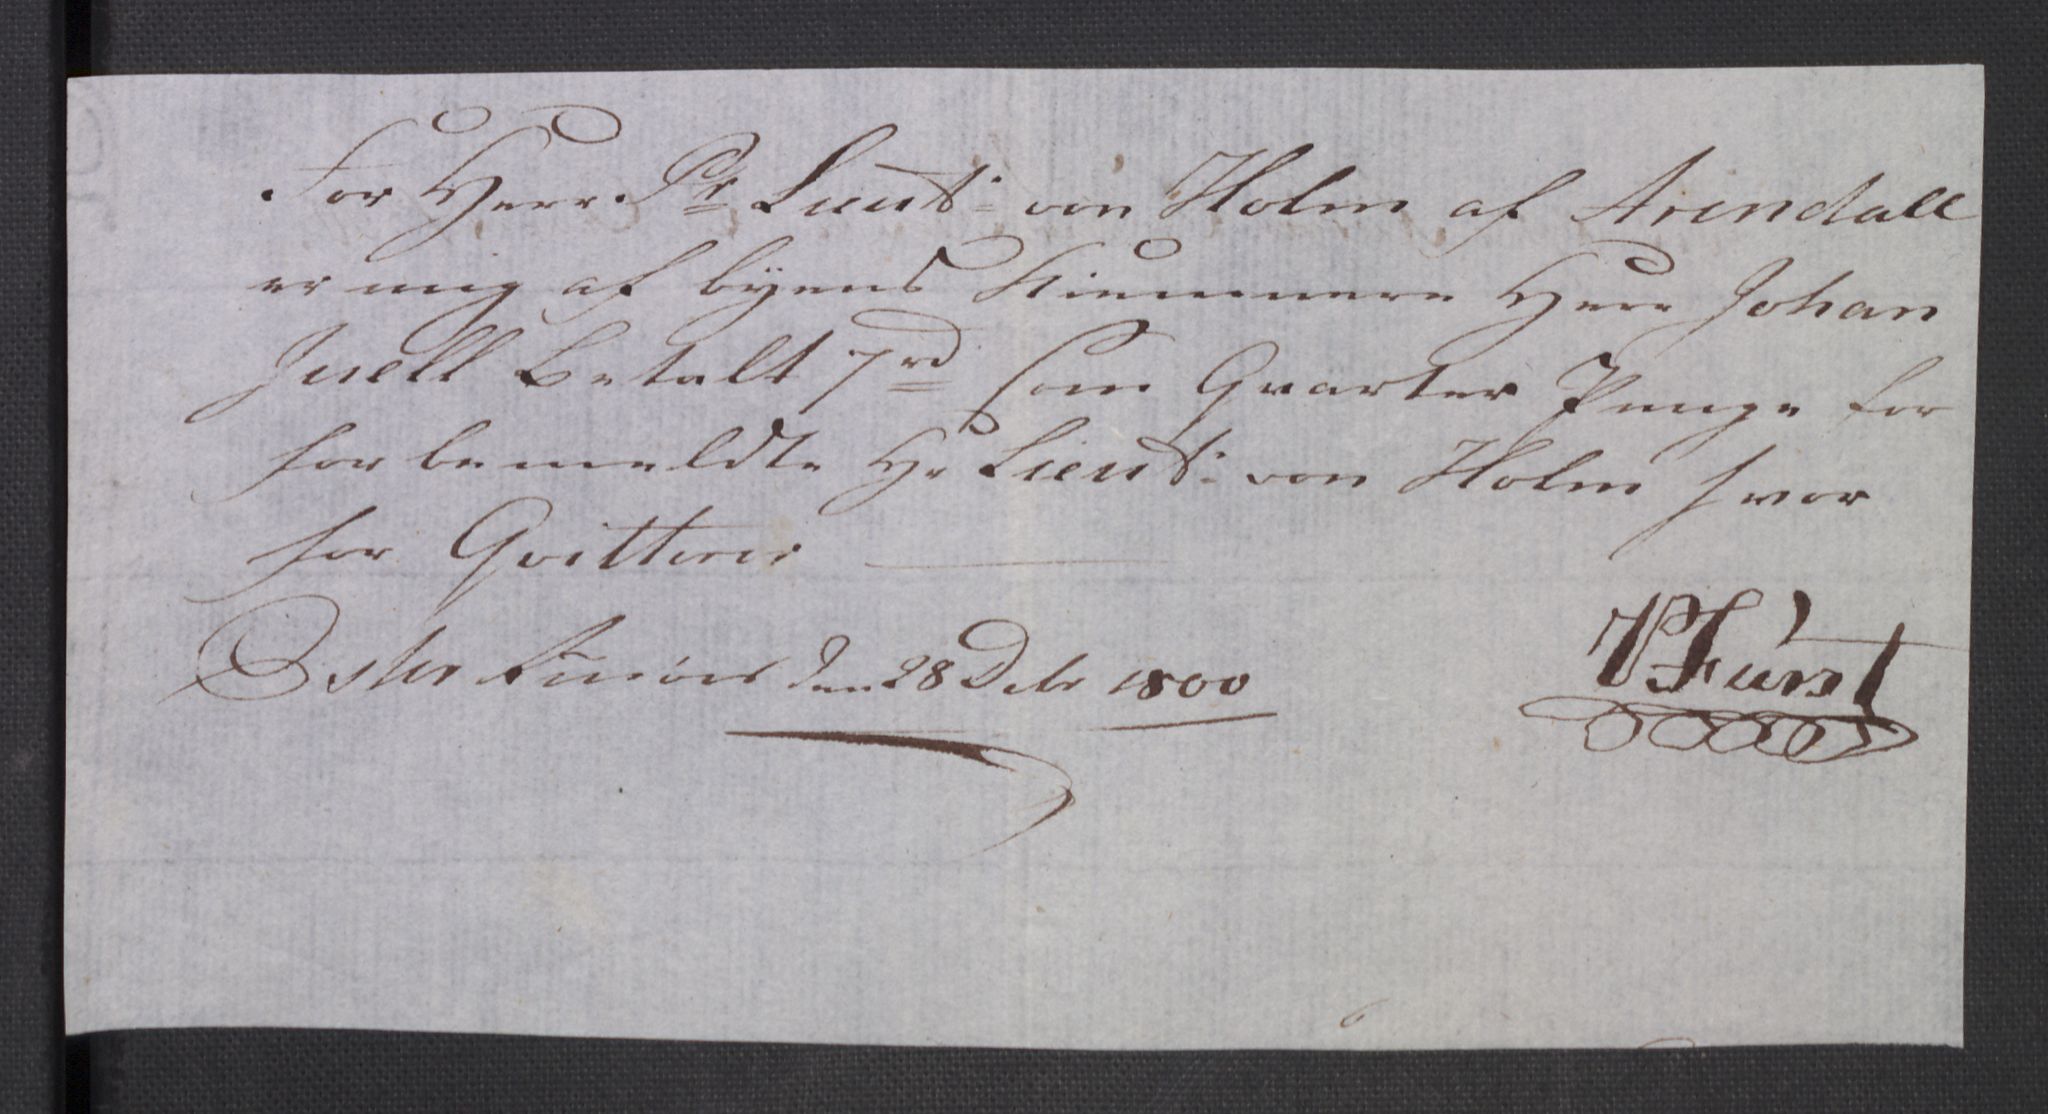 For Herr Pr Lieut: von Holm af Arendall
er mig af byens Kiemnere Herr Johan
Juell Betalt 7 rd som Qvarter Penge for
forbemeldte Hr Lieut: von Holm hvor
for Qvitterer
Øster Riisöer den 28 Debr 1800
Fürst